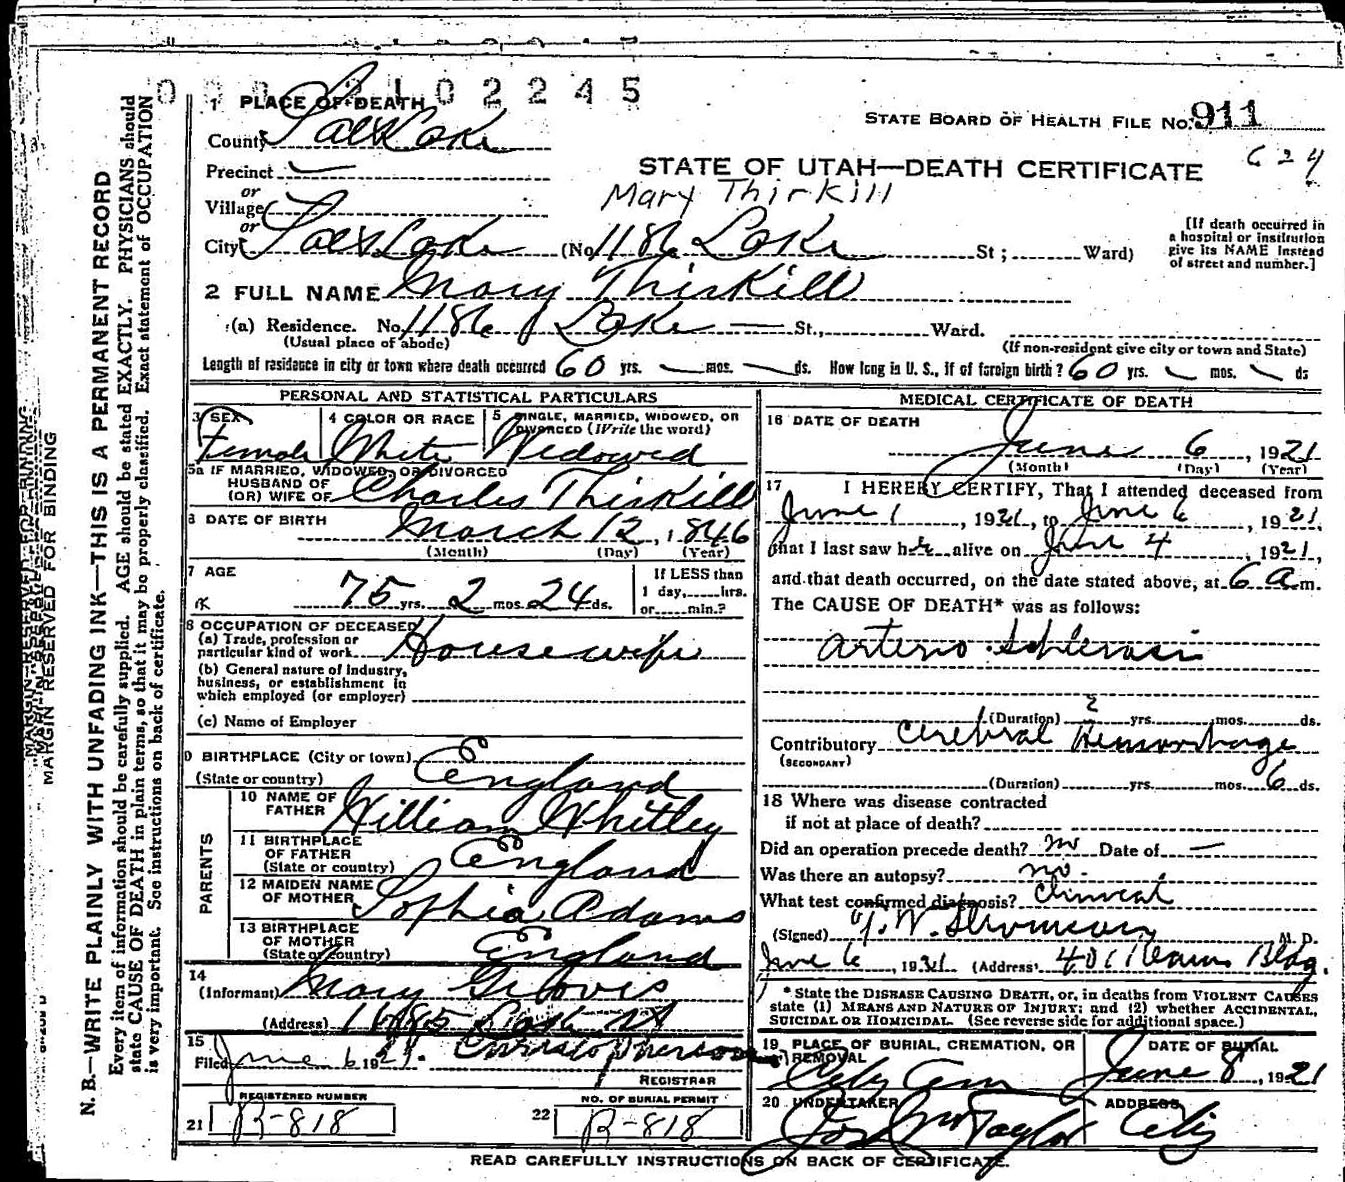 0 0 0 2 1 0 2 2 4 5
1 PLACE OF DEATH
STATE BOARD OF HEALTH FILE NO. 911
County Salt Lake
624
Precinct
STATE OF UTAH—DEATH CERTIFICATE
or
Mary Thirkill
Village
or
City Salt Lake (No. 1186 Lake St; Ward)
[If death occurred in
a hospital or institution
give its NAME instead
of street and number.]
2 FULL NAME Mary Thirkill
(a) Residence. No. 1186 Lake — St., Ward.
(Usual place of abode)
(If non-resident give city or town and State)
Length of residence in city or town where death occurred 60 yrs. — mos. — ds. How long in U. S., if of foreign birth? 60 yrs. — mos. — ds
PERSONAL AND STATISTICAL PARTICULARS
3 SEX
Female
4 COLOR OR RACE
White
5 SINGLE, MARRIED, WIDOWED, OR
DIVORCED (Write the word)
Widowed
5a IF MARRIED, WIDOWED, OR DIVORCED
HUSBAND OF
(OR) WIFE OF Charles Thirkill
6 DATE OF BIRTH
March 12, 1846
(Month) (Day) (Year)
7 AGE
75 yrs. 2 mos. 24 ds.
If LESS than
1 day, hrs.
or min.?
8 OCCUPATION OF DECEASED
(a) Trade, profession or
particular kind of work Housewife
(b) General nature of industry,
business, or establishment in
which employed (or employer)
(c) Name of Employer
9 BIRTHPLACE (City or town)
(State or country) England
PARENTS
10 NAME OF
FATHER William Whitley
11 BIRTHPLACE
OF FATHER
(State or country) England
12 MAIDEN NAME
OF MOTHER Sophia Adams
13 BIRTHPLACE
OF MOTHER
(State or country) England
14
(Informant) Mary
(Address)
15
Filed June 6 1921.
REGISTRAR
REGISTERED NUMBER
21 B-818
NO. OF BURIAL PERMIT
22 B-818
MEDICAL CERTIFICATE OF DEATH
16 DATE OF DEATH
June 6, 1921
(Month) (Day) (Year)
17 I HEREBY CERTIFY, That I attended deceased from
June 1, 1921, to June 6, 1921,
that I last saw her alive on June 4, 1921,
and that death occurred, on the date stated above, at 6 a m.
The CAUSE OF DEATH* was as follows:
Arterio Schlerosis
(Duration) 2 yrs. mos. ds.
Contributory Cerebral Hemorrhage
(SECONDARY)
(Duration) yrs. mos. 6 ds.
18 Where was disease contracted
if not at place of death?
Did an operation precede death? no Date of —
Was there an autopsy? no.
What test confirmed diagnosis? Clinical
(Signed) M. D.
June 6, 1921 (Address) 401 Kearns Bldg.
* State the DISEASE CAUSING DEATH, or, in deaths from VIOLENT CAUSES
state (1) MEANS AND NATURE OF INJURY; and (2) whether ACCIDENTAL,
SUICIDAL OR HOMICIDAL. (See reverse side for additional space.)
19 PLACE OF BURIAL, CREMATION, OR
REMOVAL
City Cem
DATE OF BURIAL
June 8, 1921
20 UNDERTAKER
Jos Wm Taylor
ADDRESS
City
READ CAREFULLY INSTRUCTIONS ON BACK OF CERTIFICATE.
MARGIN RESERVED FOR BINDING
N. B.—WRITE PLAINLY WITH UNFADING INK—THIS IS A PERMANENT RECORD
Every item of information should be carefully supplied. AGE should be stated EXACTLY. PHYSICIANS should
state CAUSE OF DEATH in plain terms, so that it may be properly classified. Exact statement of OCCUPATION
is very important. See instructions on back of certificate.